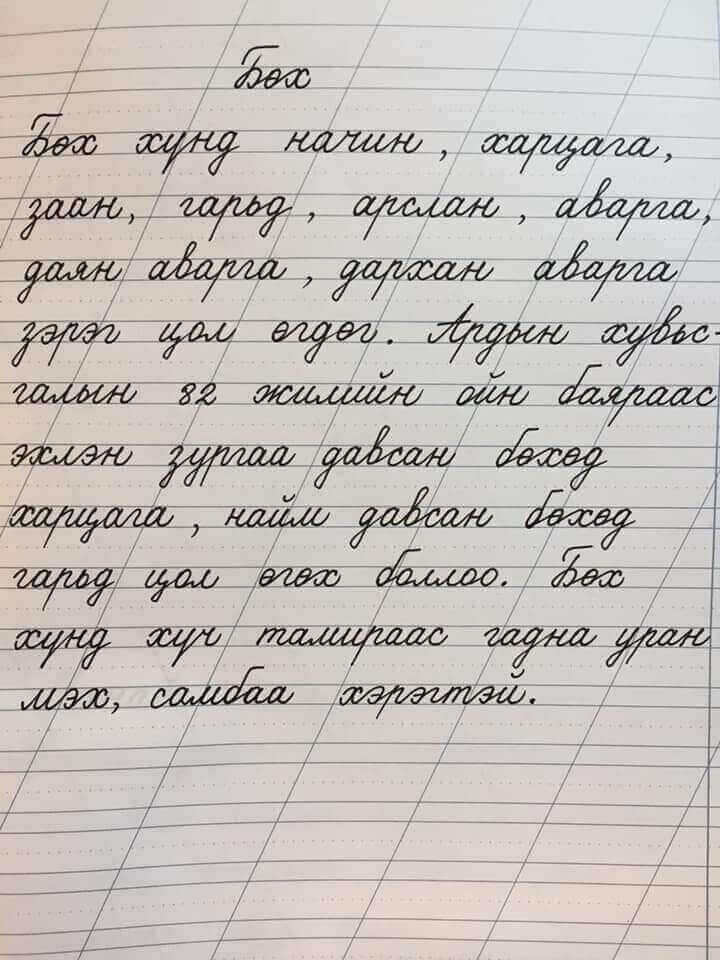 Бөх
Бөх хүнд начин, харцага,
заан, гарьд, арслан, аварга,
даян аварга, дархан аварга
зэрэг цол өгдөг. Ардын хувьс-
галын 82 жилийн ойн баяраас
эхлэн зургаа давсан бөхөд
харцага, найм давсан бөхөд
гарьд цол өгөх боллоо. Бөх
хүнд хүч тамираас гадна уран
мэх, самбаа хэрэгтэй.